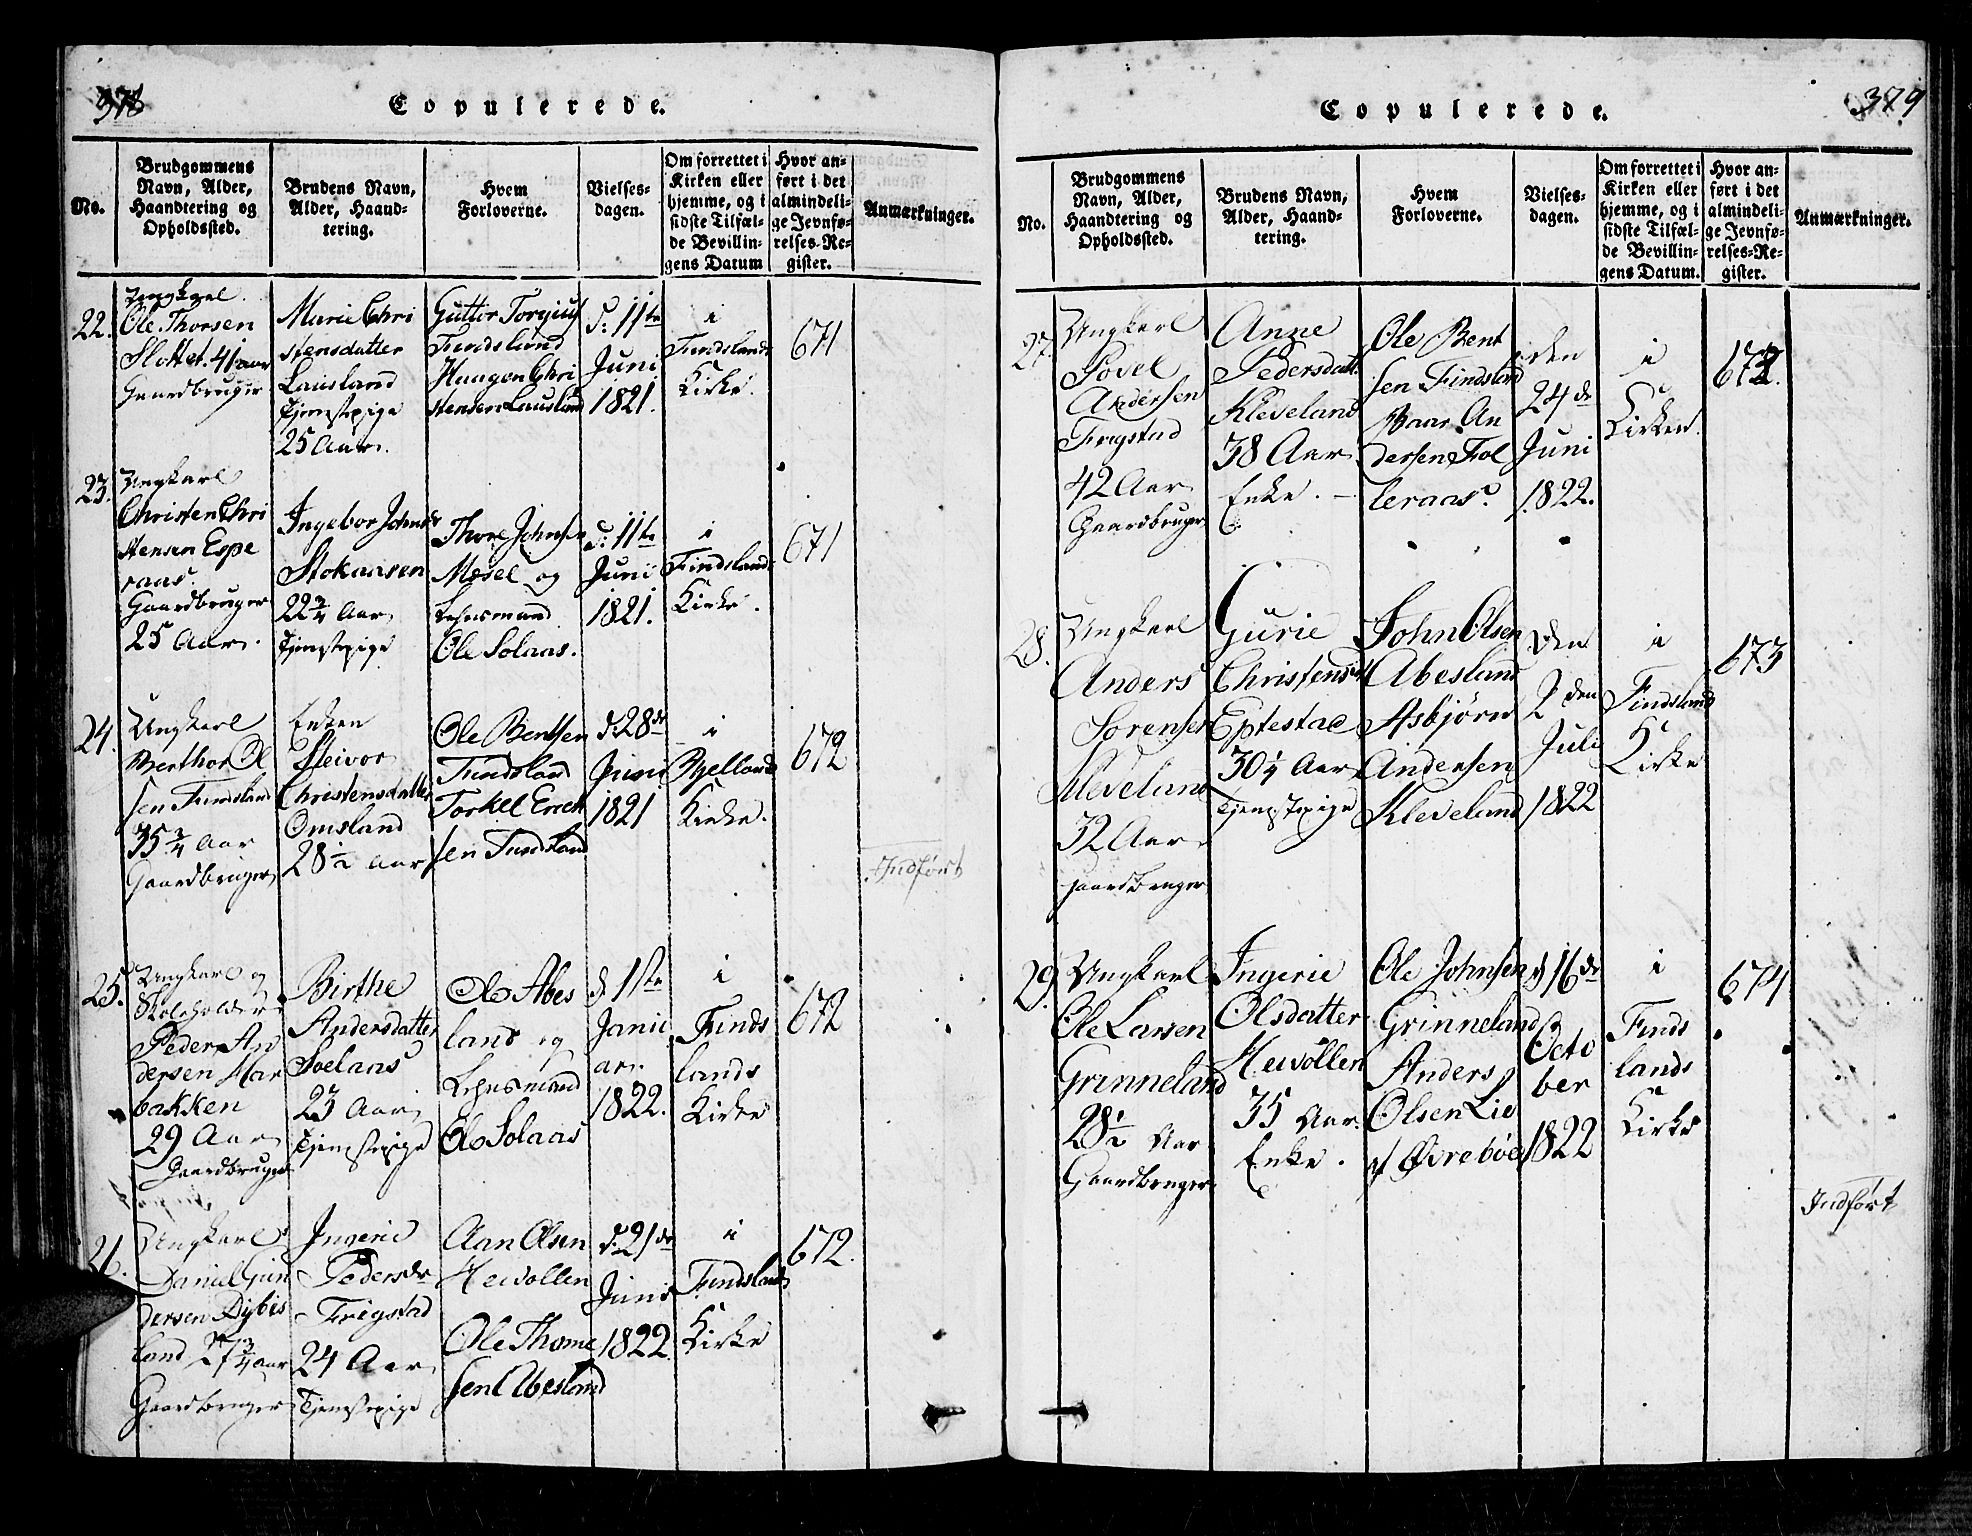 378
Copulerede.
No.
Brudgommens
Navn, Alder,
Haandtering og
Opholdssted.
Brudens Navn,
Alder, Haand-
tering.
Hvem
Forloverne.
Vielses-
dagen.
Om forrettet i
Kirken eller
hjemme, og i
sidste Tilfæl-
de Bevillin-
gens Datum
Hvor an-
ført i det
almindeli-
ge Jevnfø-
relses-Re-
gister.
Anmærkninger.
22.
Ungkarl
Ole Thorsen
Slottet. 41 aar
Gaardbruger
Marie Chri
stensdatter
Lausland
Tjenestepige
25 Aar.
Guttor Torgius
Findsland
Haagen Chri
stensen Lausland
d: 11te
Juni
1821.
i
Findslands
Kirke.
671
23.
Ungkarl
Christen Chri
stensen Espe
raas.
Gaardbruger
25 Aar.
Ingebor Johnsdr
Stokaasen
22 3/4 Aar
Tjenestepige
Thore Johnsen
Mosel og
Lehnsmand
Ole Solaas.
d: 11te
Juni
1821.
i
Findslands
Kirke.
671
24.
Ungkarl
Berthor Ol
sen Findsland
35 3/4 Aar
Gaardbruger
Enken
Sleivor
Christensdatter
Omsland
28 1/2 Aar
Ole Bentsen
Findsland
Torkel Erich
sen Findsland
d. 28de
Juni
1821
i
Bjellands
Kirke.
672
Indført
25.
Ungkarl og
Skoleholder
Peder An
dersen Har
bakken
29 Aar
Gaardbruger
Birthe
Andersdatter
Soelaas
23 Aar
Tjenestepige
Ole Abes
land og
Lehnsmand
Ole Solaas
d 1ste
Janu
ar.
1822.
i
Finds
lands
Kirke
672
26.
Ungkarl
Daniel Gun
dersen Dybes
land 27 3/4 aar
Gaardbruger
Ingerie
Pedersdr
Frigstad
24 Aar
Tjenestepige
Aan Olsen
Heivollen
Ole Thome
sen Abesland
d. 21de
Juni
1822
i
Findslands
Kirke
672.
379
Copulerede.
No.
Brudgommens
Navn, Alder,
Haandtering og
Opholdssted.
Brudens Navn,
Alder, Haand-
tering.
Hvem
Forloverne.
Vielses-
dagen.
Om forrettet i
Kirken eller
hjemme, og i
sidste Tilfæl-
de Bevillin-
gens Datum.
Hvor an-
ført i det
almindeli-
ge Jevnfø-
relses-Re-
gister.
Anmærkninger.
27.
Ungkarl
Povel
Andersen
Frigstad
42 Aar
Gaardbruger
Anne
Pedersdatt.
Kleveland
38 Aar
Enke.
Ole Bent
sen Findsland
An
dersen Fol
leraas.
den
24de
Juni
1822.
i
Kirken.
672.
28.
Ungkarl
Anders
Sørensen
Kleveland
32 Aar
Gaardbruger
Gurie
Christensd
Eptestae
30 1/4 Aar
Tjenstepige
John Olsen
Abesland
Asbjørn
Andersen
Kleveland
Den
2den
Juli
1822
i
Findsland
Kirke
673
29.
Ungkarl
Ole Larsen
Grinneland
28 1/2 Aar
Gaardbruger
Ingerie
Olsdatter
Heivollen
35 Aar.
Enke.
Ole Johnsen
Grinneland
Anders
Olsen Lie
af Øvrebøe
d 16de
Octo
ber
1822
i
Finds
lands
Kirke
674
Indført